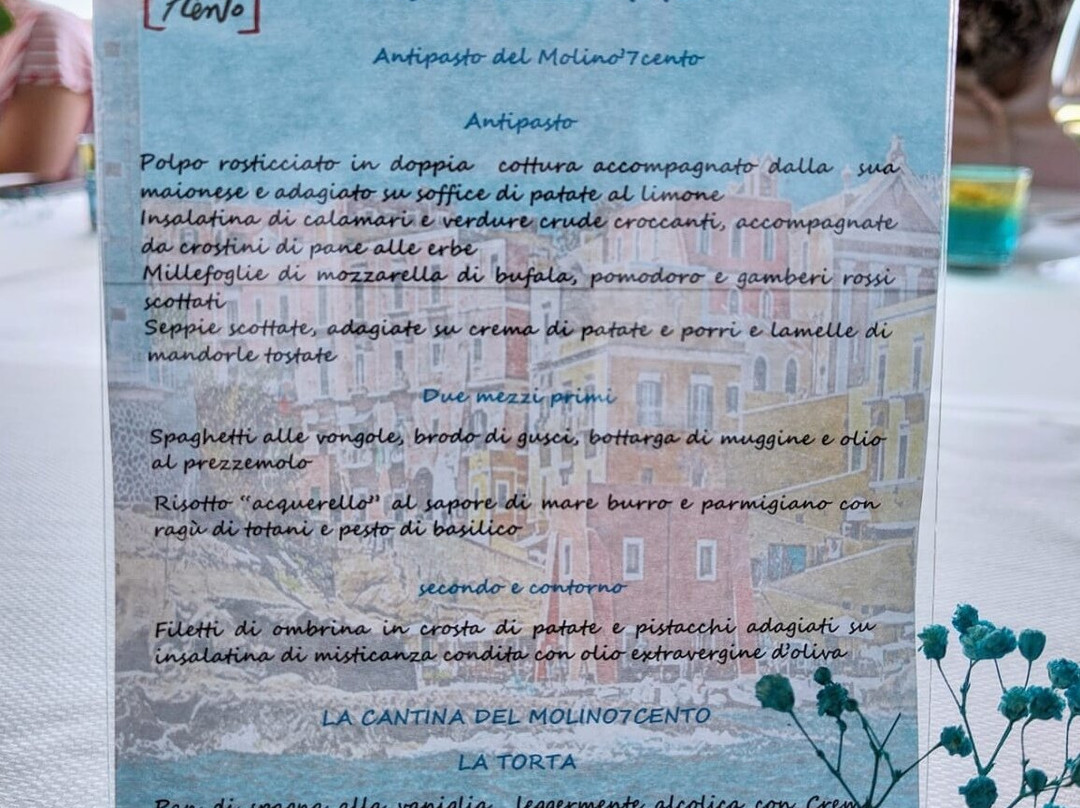 Antipasto del Molino'7cento
Antipasto
Polpo rosticciato in doppia cottura accompagnato dalla sua
maionese e adagiato su soffice di patate al limone
Insalatina di calamari e verdure crude croccanti, accompagnate
da crostini di pane alle erbe
Millefoglie di mozzarella di bufala, pomodoro e gamberi rossi
scottati
Seppie scottate, adagiate su crema di patate e porri e lamelle di
mandorle tostate
Due mezzi primi
Spaghetti alle vongole, brodo di gusci, bottarga di muggine e olio
al prezzemolo
Risotto "acquerello" al sapore di mare burro e parmigiano con
ragù di totani e pesto di basilico
secondo e contorno
Filetti di ombrina in crosta di patate e pistacchi adagiati su
insalatina di misticanza condita con olio extravergine d'oliva
LA CANTINA DEL MOLINO7CENTO
LA TORTA
Pan di spagna alla vaniglia leggermente alcolica con Crem